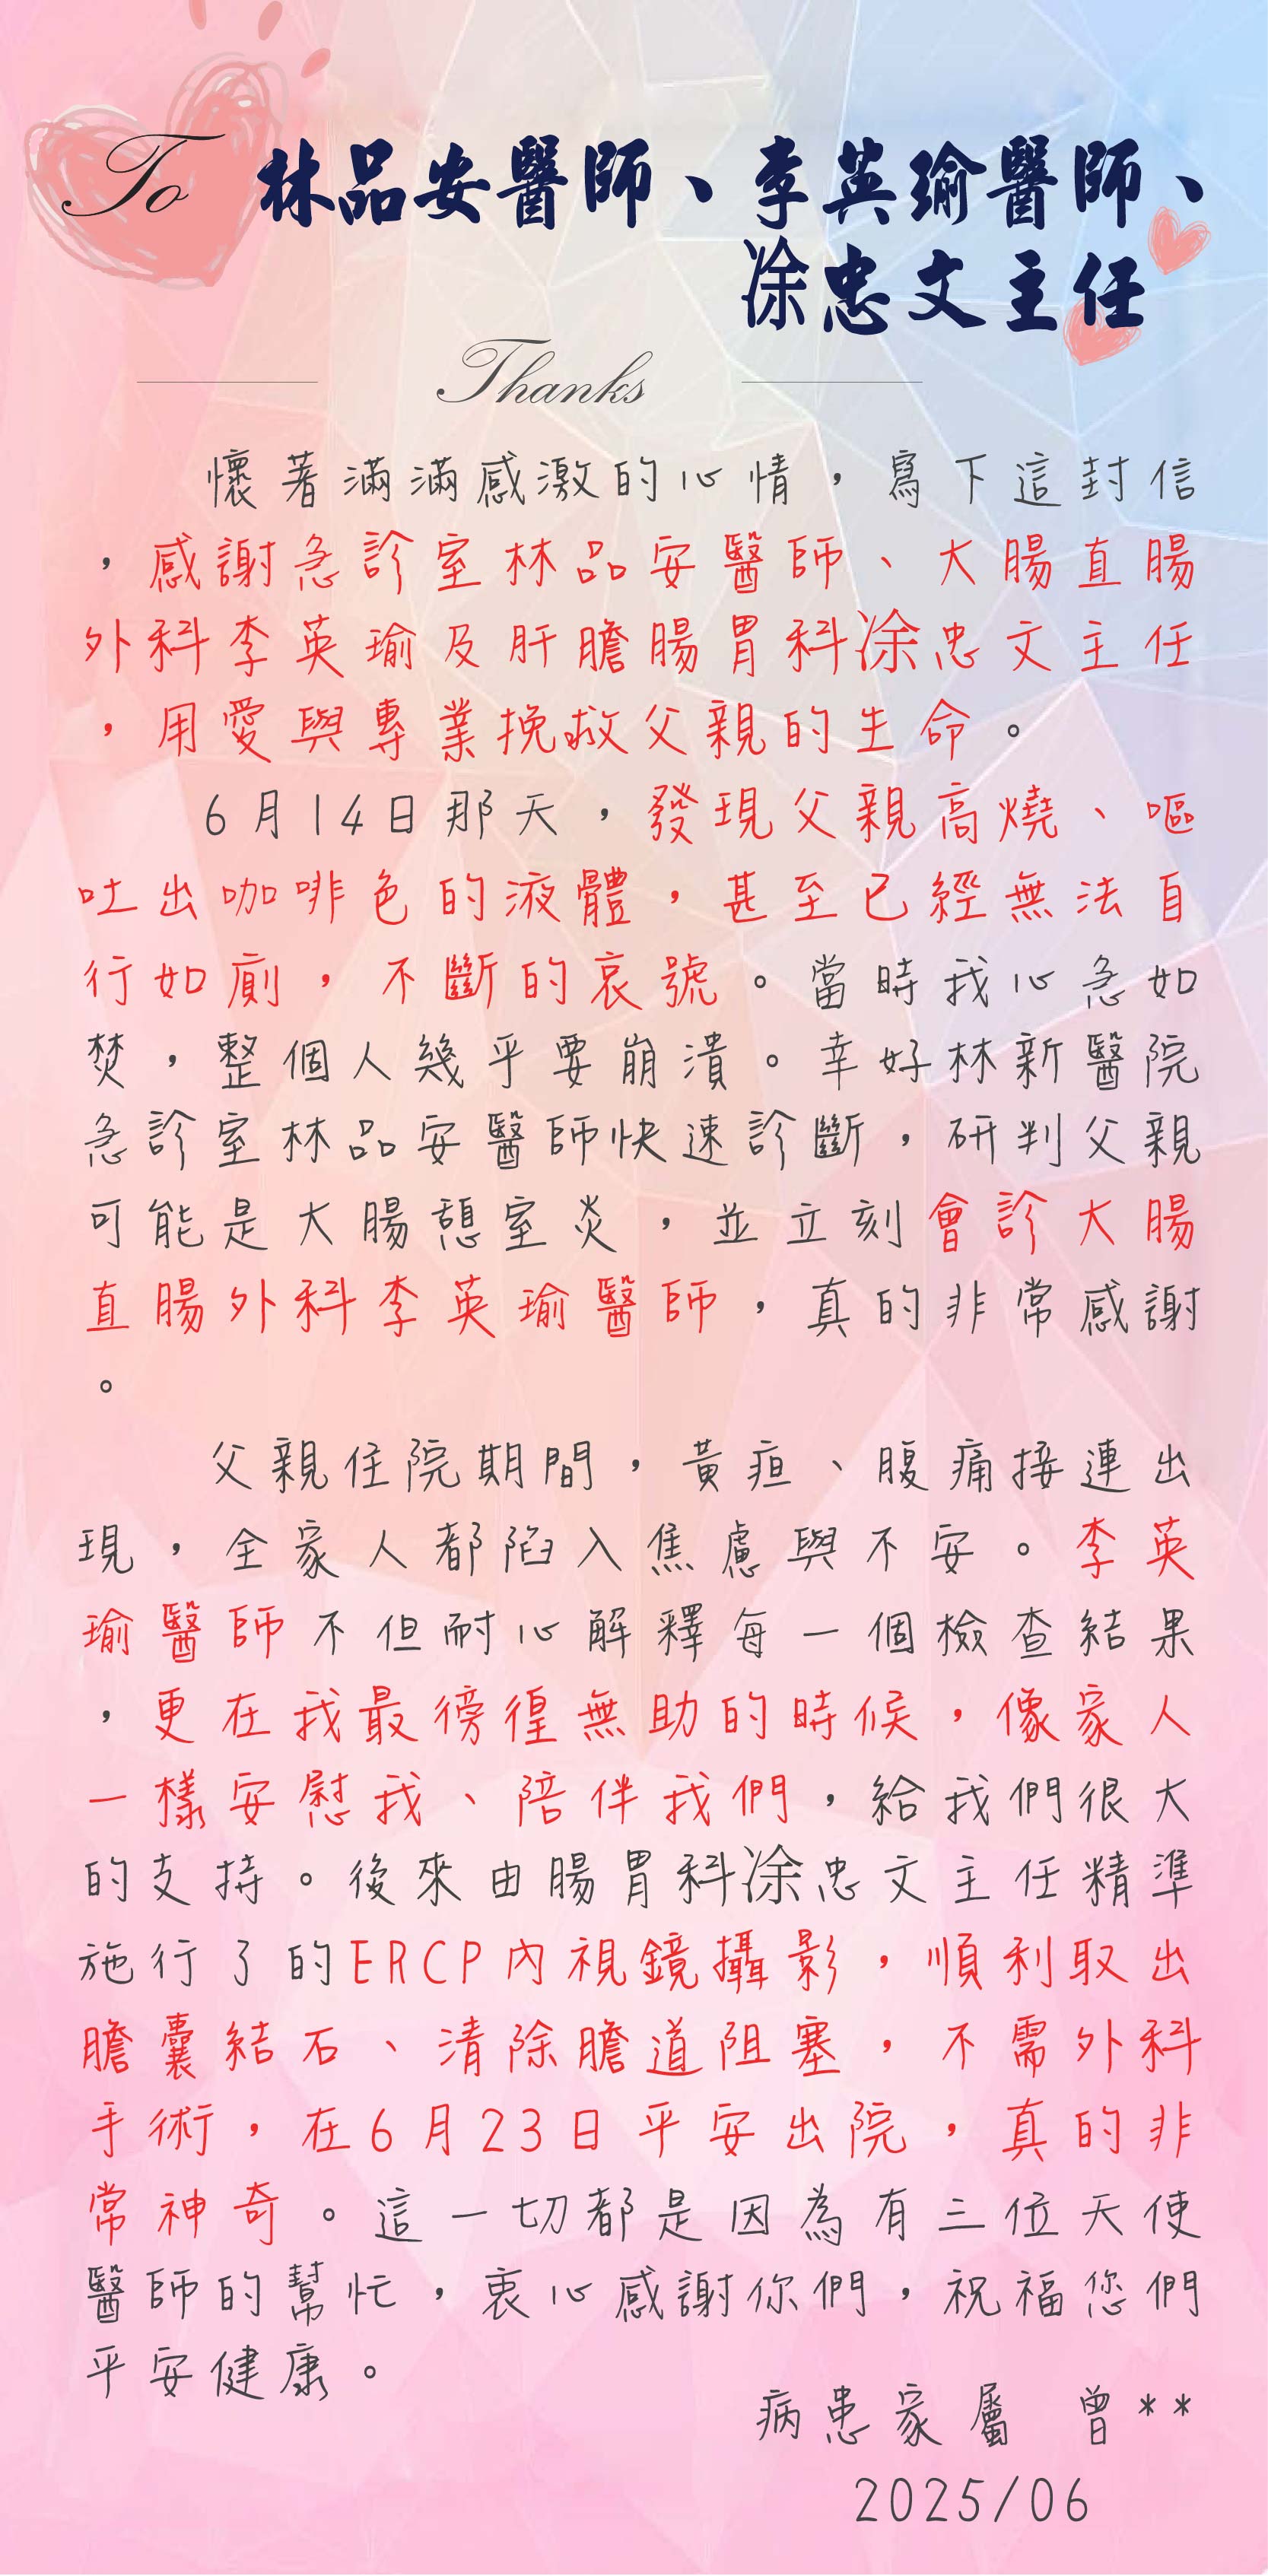 To 林品安醫師、李英瑜醫師、
凃忠文主任
Thanks
懷著滿滿感激的心情，寫下這封信
，感謝急診室林品安醫師、大腸直腸
外科李英瑜及肝膽腸胃科凃忠文主任
，用愛與專業挽救父親的生命。
6月14日那天，發現父親高燒、嘔
吐出咖啡色的液體，甚至已經無法自
行如廁，不斷的哀號。當時我心急如
焚，整個人幾乎要崩潰。幸好林新醫院
急診室林品安醫師快速診斷，研判父親
可能是大腸憩室炎，並立刻會診大腸
直腸外科李英瑜醫師，真的非常感謝
。
父親住院期間，黃疸、腹痛接連出
現，全家人都陷入焦慮與不安。李英
瑜醫師不但耐心解釋每一個檢查結果
，更在我最徬徨無助的時候，像家人
一樣安慰我、陪伴我們，給我們很大
的支持。後來由腸胃科凃忠文主任精準
施行了的ERCP內視鏡攝影，順利取出
膽囊結石、清除膽道阻塞，不需外科
手術，在6月23日平安出院，真的非
常神奇。這一切都是因為有三位天使
醫師的幫忙，衷心感謝你們，祝福您們
平安健康。
病患家屬 曾**
2025/06